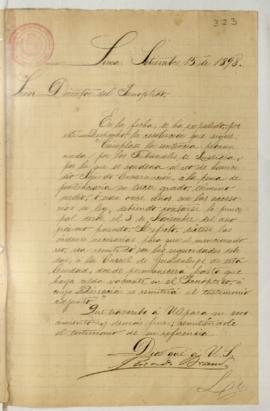 323
Lima, Setiembre 15 de 1898.
Señor Director del Panóptico.
En la fecha, se ha expedido por
este Despacho la resolución que sigue:
"Cumplase la sentencia pronun-
ciada por los Tribunales de Justicia,
por la que se condena al reo de homici-
dio á la pena de
penitenciaría en tercer grado, término
medio, ó sea once años con las acceso-
rias de ley, debiendo contarse el princi-
pal desde el 3 de del año
próximo pasado. las
órdenes necesarias para que el mencionado
reo, sea remitido con las seguridades debi-
das, á la Carcel de Guadalupe de esta
Ciudad, donde permanecerá hasta que
haya celda vacante en el Panóptico, á
cuya Dirección se remitirá el testimonio
adjunto."
Que trascribo á US para su cono-
cimiento y demás fines, remitiéndole
el testimonio de su referencia.
Dios gue á US.